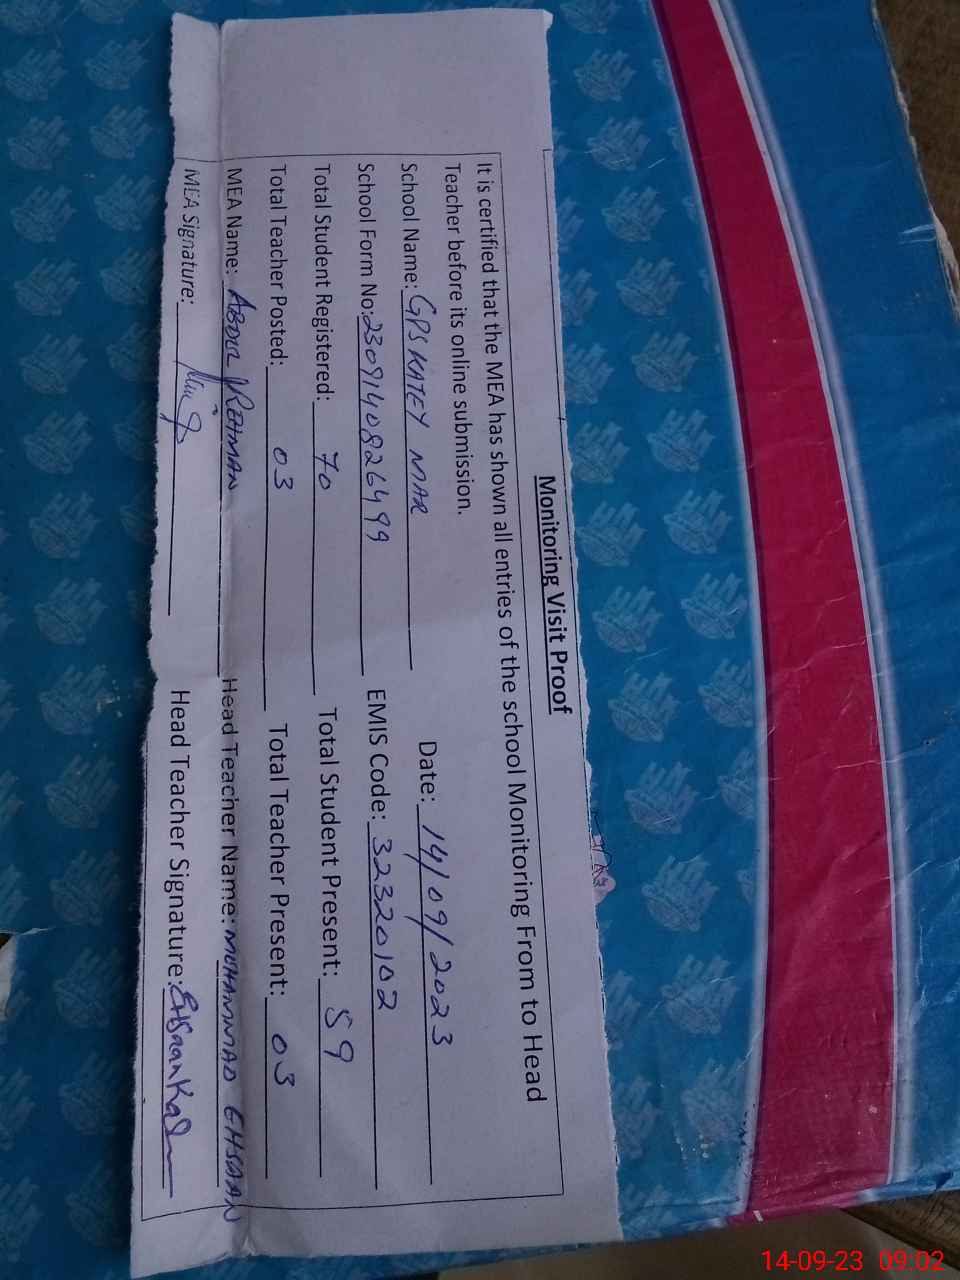 Monitoring Visit Proof
It is certified that the MEA has shown all entries of the school Monitoring From to Head
Teacher before its online submission.
School Name: GPS KATEY MAR Date: 14/09/2023
School Form No: 2309140826499 EMIS Code: 32320102
Total Student Registered: 70 Total Student Present: 59
Total Teacher Posted: 03 Total Teacher Present: 03
MEA Name: ABDUL REHMAN Head Teacher Name: MUHAMMAD EHSAAN
MEA Signature: Head Teacher Signature: Ehsaan
14-09-23 09:02